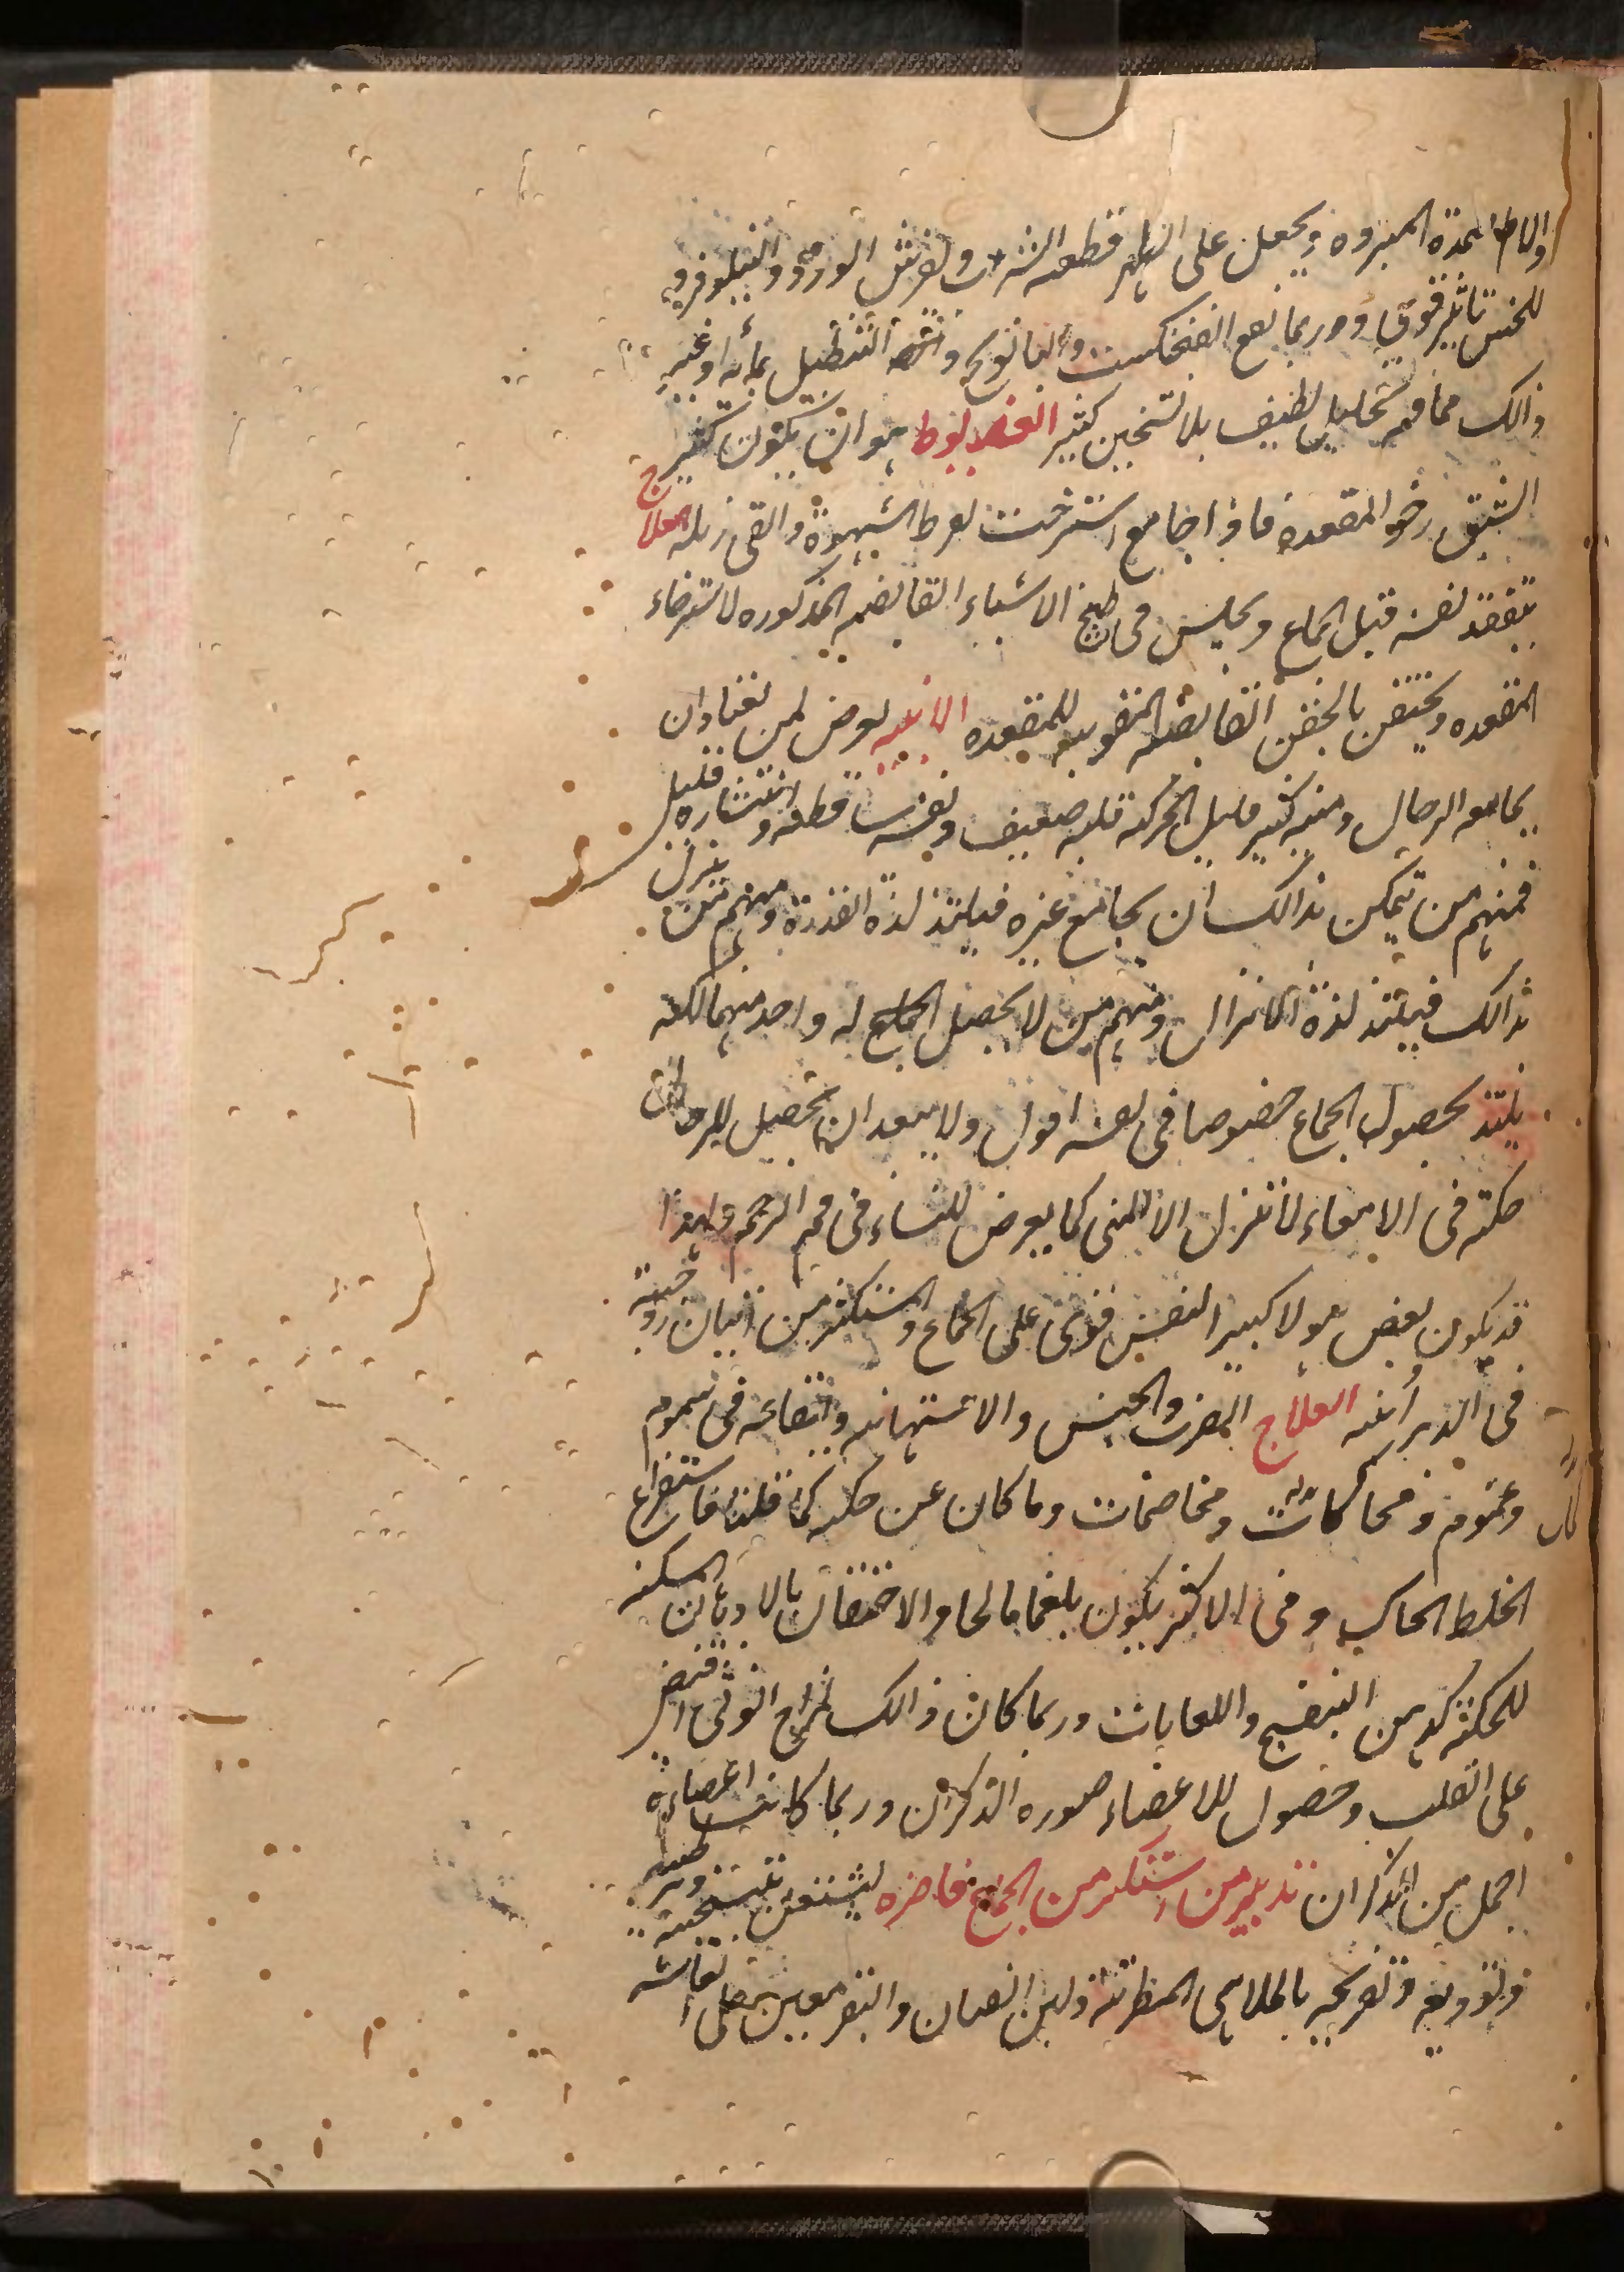 والاطمدة المبرده ويجعل على الظهر قطعه الاسرب ويفرش الورد والنيلوفر و
للخس تاثير قوي ودربما نفع الفنجنكست والبابونج التنطيل بمائه او غير
ذالك مما فيه تحليل لطيف بلا تسخين كثير العضيوط هو ان يكون كثير
الشبق رخو المقعده فاذا جامع استرخت لفرط الشهوة والقى زبله العلاج
يتفقد نفسه قبل الجماع ويجلس في طبيخ الاشياء القابضه المذكوره لاسترخاء
المقعده ويحتقن بالحقن القابضه المقويه للمقعده الابنه يعرض لمن يعتاد ان
يجامعه الرجال ومنيه كثير قليل الحركه قلبه ضعيف ونفسه ساقطه وانتشاره قليل
فمنهم من يتمكن بذالك ان يجامع غيره فيلتذ لذة القذرة ومنهم من ينزل
بذالك فيلتذ لذة الانزال ومنهم من لا يحصل له واحد منهما لكنه
يلتذ بحصول الجماع خصوصا في نفسه اقول ولا يبعد ان يحصل للرجال
حكة في الامعاء لا تنزل الا بالمنى كما يعرض للنساء في فم الرحم ولهذا
قد يكون بعض هولا كبير النفس قوى على الجماع واستكثر من اتيان زوجته
في الدبر ابنه العلاج الضرب والحبس والاستهانه وايقاعه في هموم
وغموم ومحاكمات ومخاصمات وما كان عن حكه كما قلنا فاستفراغ
الخلط الحاك وفي الاكثر يكون بلغما مالحا والاحتقان بالادهان المسكنه
للحكة كدهن البنفسج واللعابات وربما كان ذالك لمزاج انوثي اقتضى
على القلب وحصول للاعضاء صوره الذكران وربما كانت اعضاءه
اجمل من الذكران تدبير من استكثر من الجماع فاضره ليشتغل بتسخينه وترطيبه
وبتوديعه وتفريحه بالملاهي المطربة ولبن الضان والبقر معين على انعاشه